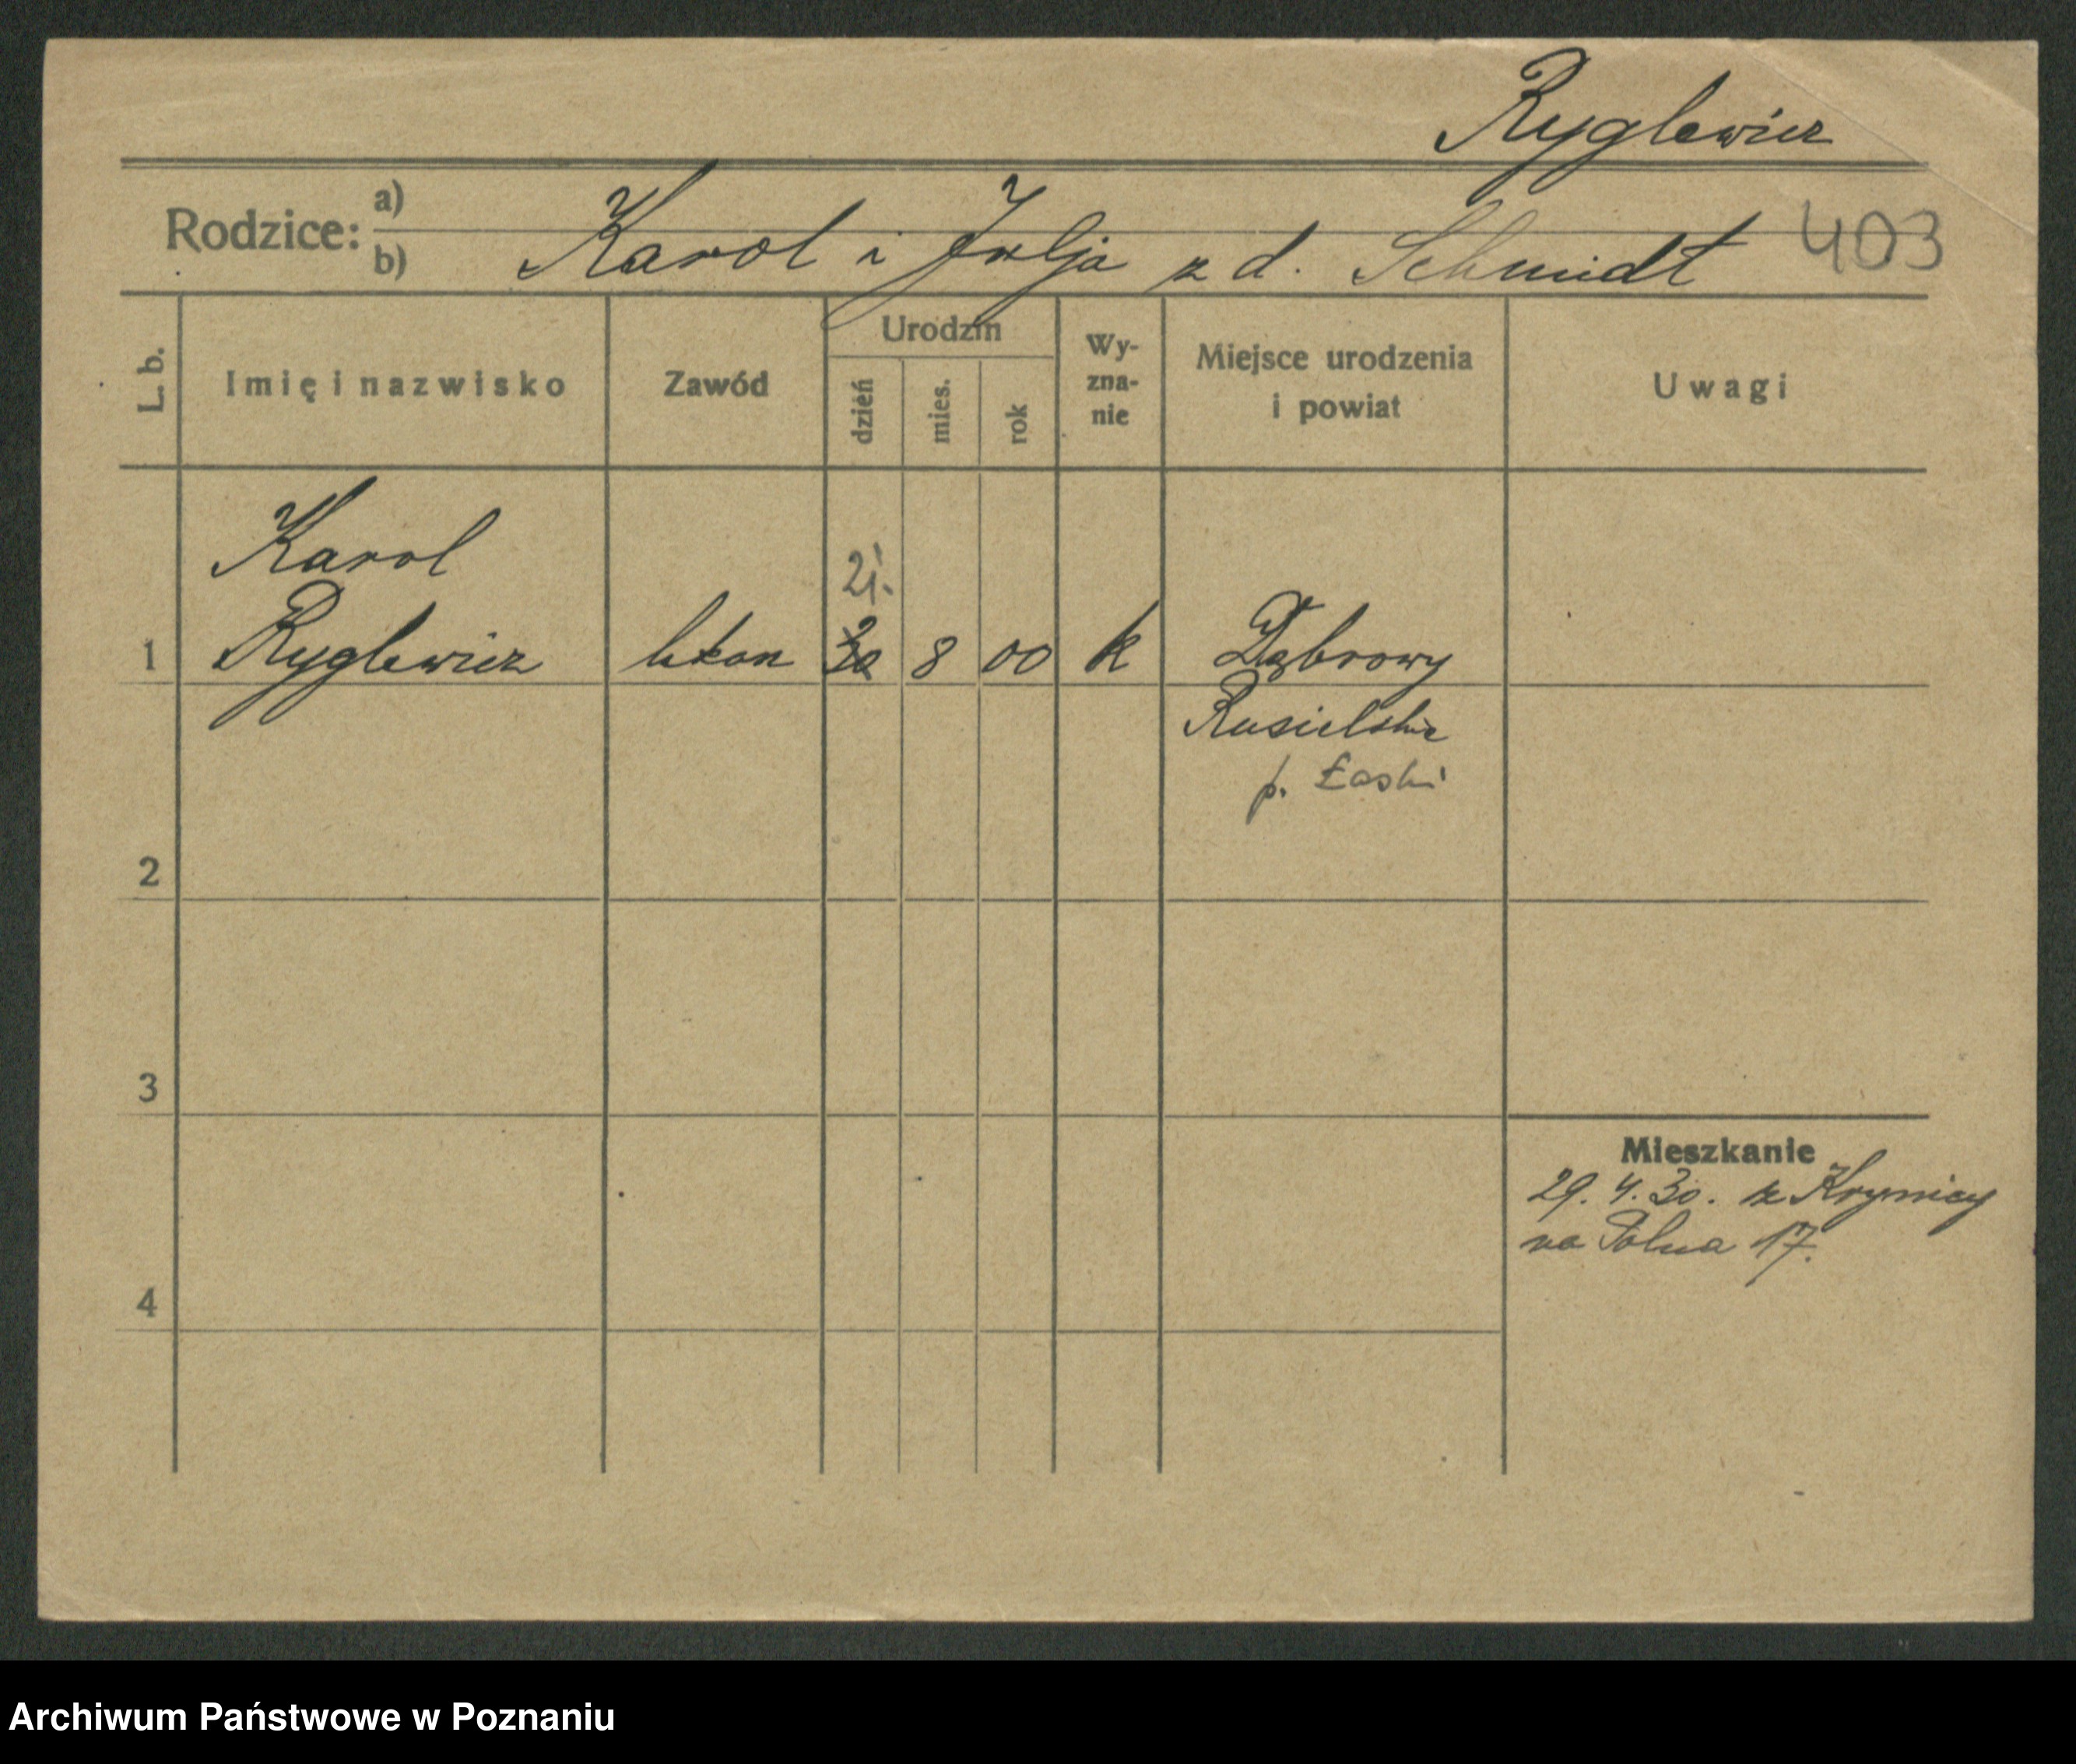 Ryglewicz
Rodzice: a)
b) Karol i Julja z d. Schmidt 403
L. b.
Imię i nazwisko
Zawód
Urodzin
dzień
mies.
rok
Wy-
zna-
nie
Miejsce urodzenia
i powiat
Uwagi
Karol
21.
1 Ryglewicz 8 00 k Dąbrowy
Rusielskie
p. Łaski
2
3
Mieszkanie
29. 4. 30. z Krynicy
na Polna 17.
4
Archiwum Państwowe w Poznaniu